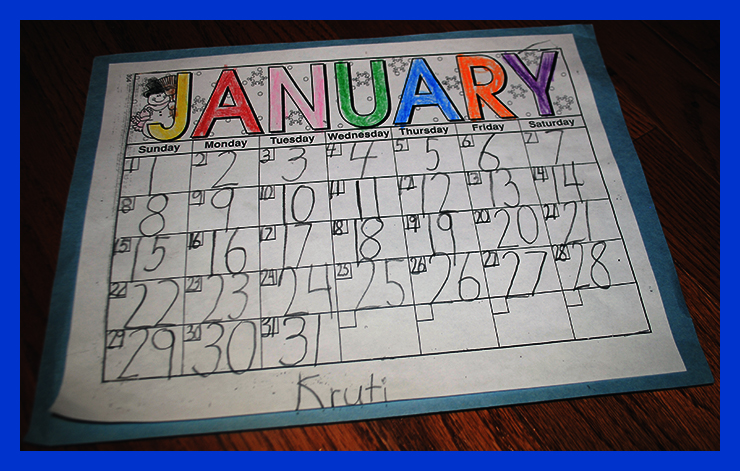 JANUARY
Sunday Monday Tuesday Wednesday Thursday Friday Saturday
1 1 2 2 3 3 4 4 5 5 6 6 7 7
8 8 9 9 10 10 11 11 12 12 13 13 14 14
15 15 16 16 17 17 18 18 19 19 20 20 21 21
22 22 23 23 24 24 25 25 26 26 27 27 28 28
29 29 30 30 31 31
Kruti